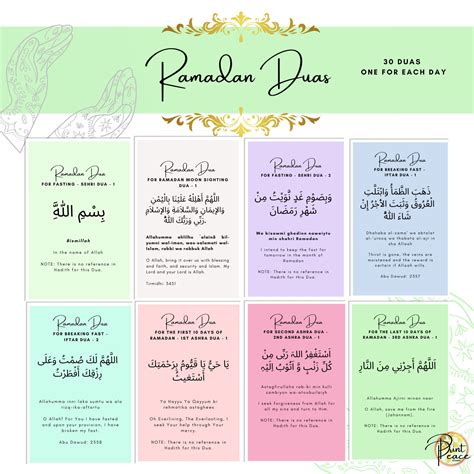 Ramadan Duas
30 DUAS
ONE FOR EACH DAY
Ramadan Dua
FOR FASTING - SEHRI DUA - 1
بِسْمِ اللَّهِ
Bismillah
In the name of Allah
NOTE: There is no reference in
Hadith for this Dua.
Ramadan Dua
FOR RAMADAN MOON SIGHTING
DUA - 1
اللَّهُمَّ أَهْلِلْهُ عَلَيْنَا بِالْيُمْنِ
وَالإِيمَانِ وَالسَّلاَمَةِ وَالإِسْلاَمِ
رَبِّي وَرَبُّكَ اللَّهُ
Allahumma ahlilhu 'alainā bil-
yumni wal-iman, was-salamati wal-
Islam, rabbi wa rabbuk Allah
O Allah, bring it over us with
blessing and faith, and security and
Islam. My Lord and your Lord is Allah
Tirmidhi: 3451
Ramadan Dua
FOR FASTING - SEHRI DUA - 2
وَبِصَوْمِ غَدٍ نَّوَيْتُ مِنْ
شَهْرِ رَمَضَانَ
Wa bisawmi ghadinn nawaiytu
min shahri Ramadan
I intend to keep the fast for
tomorrow in the month of
Ramadan
NOTE: There is no reference in
Hadith for this Dua.
Ramadan Dua
FOR BREAKING FAST -
IFTAR DUA - 1
ذَهَبَ الظَّمَأُ وَابْتَلَّتِ
الْعُرُوقُ وَثَبَتَ الأَجْرُ إِنْ
شَاءَ اللَّهُ
Abu Dawud: 2357
Ramadan Dua
FOR BREAKING FAST -
IFTAR DUA - 2
اللَّهُمَّ لَكَ صُمْتُ وَعَلَى
رِزْقِكَ أَفْطَرْتُ
Allahumma inni laka sumtu wa ala
rizq-ika-aftartu
O Allah! For You I have fasted
and upon your provision, I have
broken my fast.
Abu Dawud: 2358
Ramadan Dua
FOR THE FIRST 10 DAYS OF
RAMADAN - 1ST ASHRA DUA - 1
يَا حَيُّ يَا قَيُّومُ بِرَحْمَتِكَ
أَسْتَغِيثُ
Yā Hayyu Yā Qayyum bi
rehmatika astaghees
Oh Everliving, The Everlasting, I
seek Your help through Your
mercy.
Ramadan Dua
FOR SECOND ASHRA DUA -
2ND ASHRA DUA - 1
أَسْتَغْفِرُ اللهَ رَبِّي مِنْ
كُلِّ ذَنْبٍ وَّأَتُوبُ إِلَيْهِ
Astaghfirullaha rabbi min kulli
I seek forgiveness from Allah for
all my sins and turn to Him.
NOTE: There is no reference in
Hadith for this Dua.
Ramadan Dua
FOR THE LAST 10 DAYS OF
RAMADAN - 3RD ASHRA DUA - 1
اللَّهُمَّ أَجِرْنِي مِنَ النَّارِ
Allahumma Ajirni minan naar
O Allah, save me from the fire
(jahannam).
NOTE: There is no reference in
Hadith for this Dua.
Print
Peace